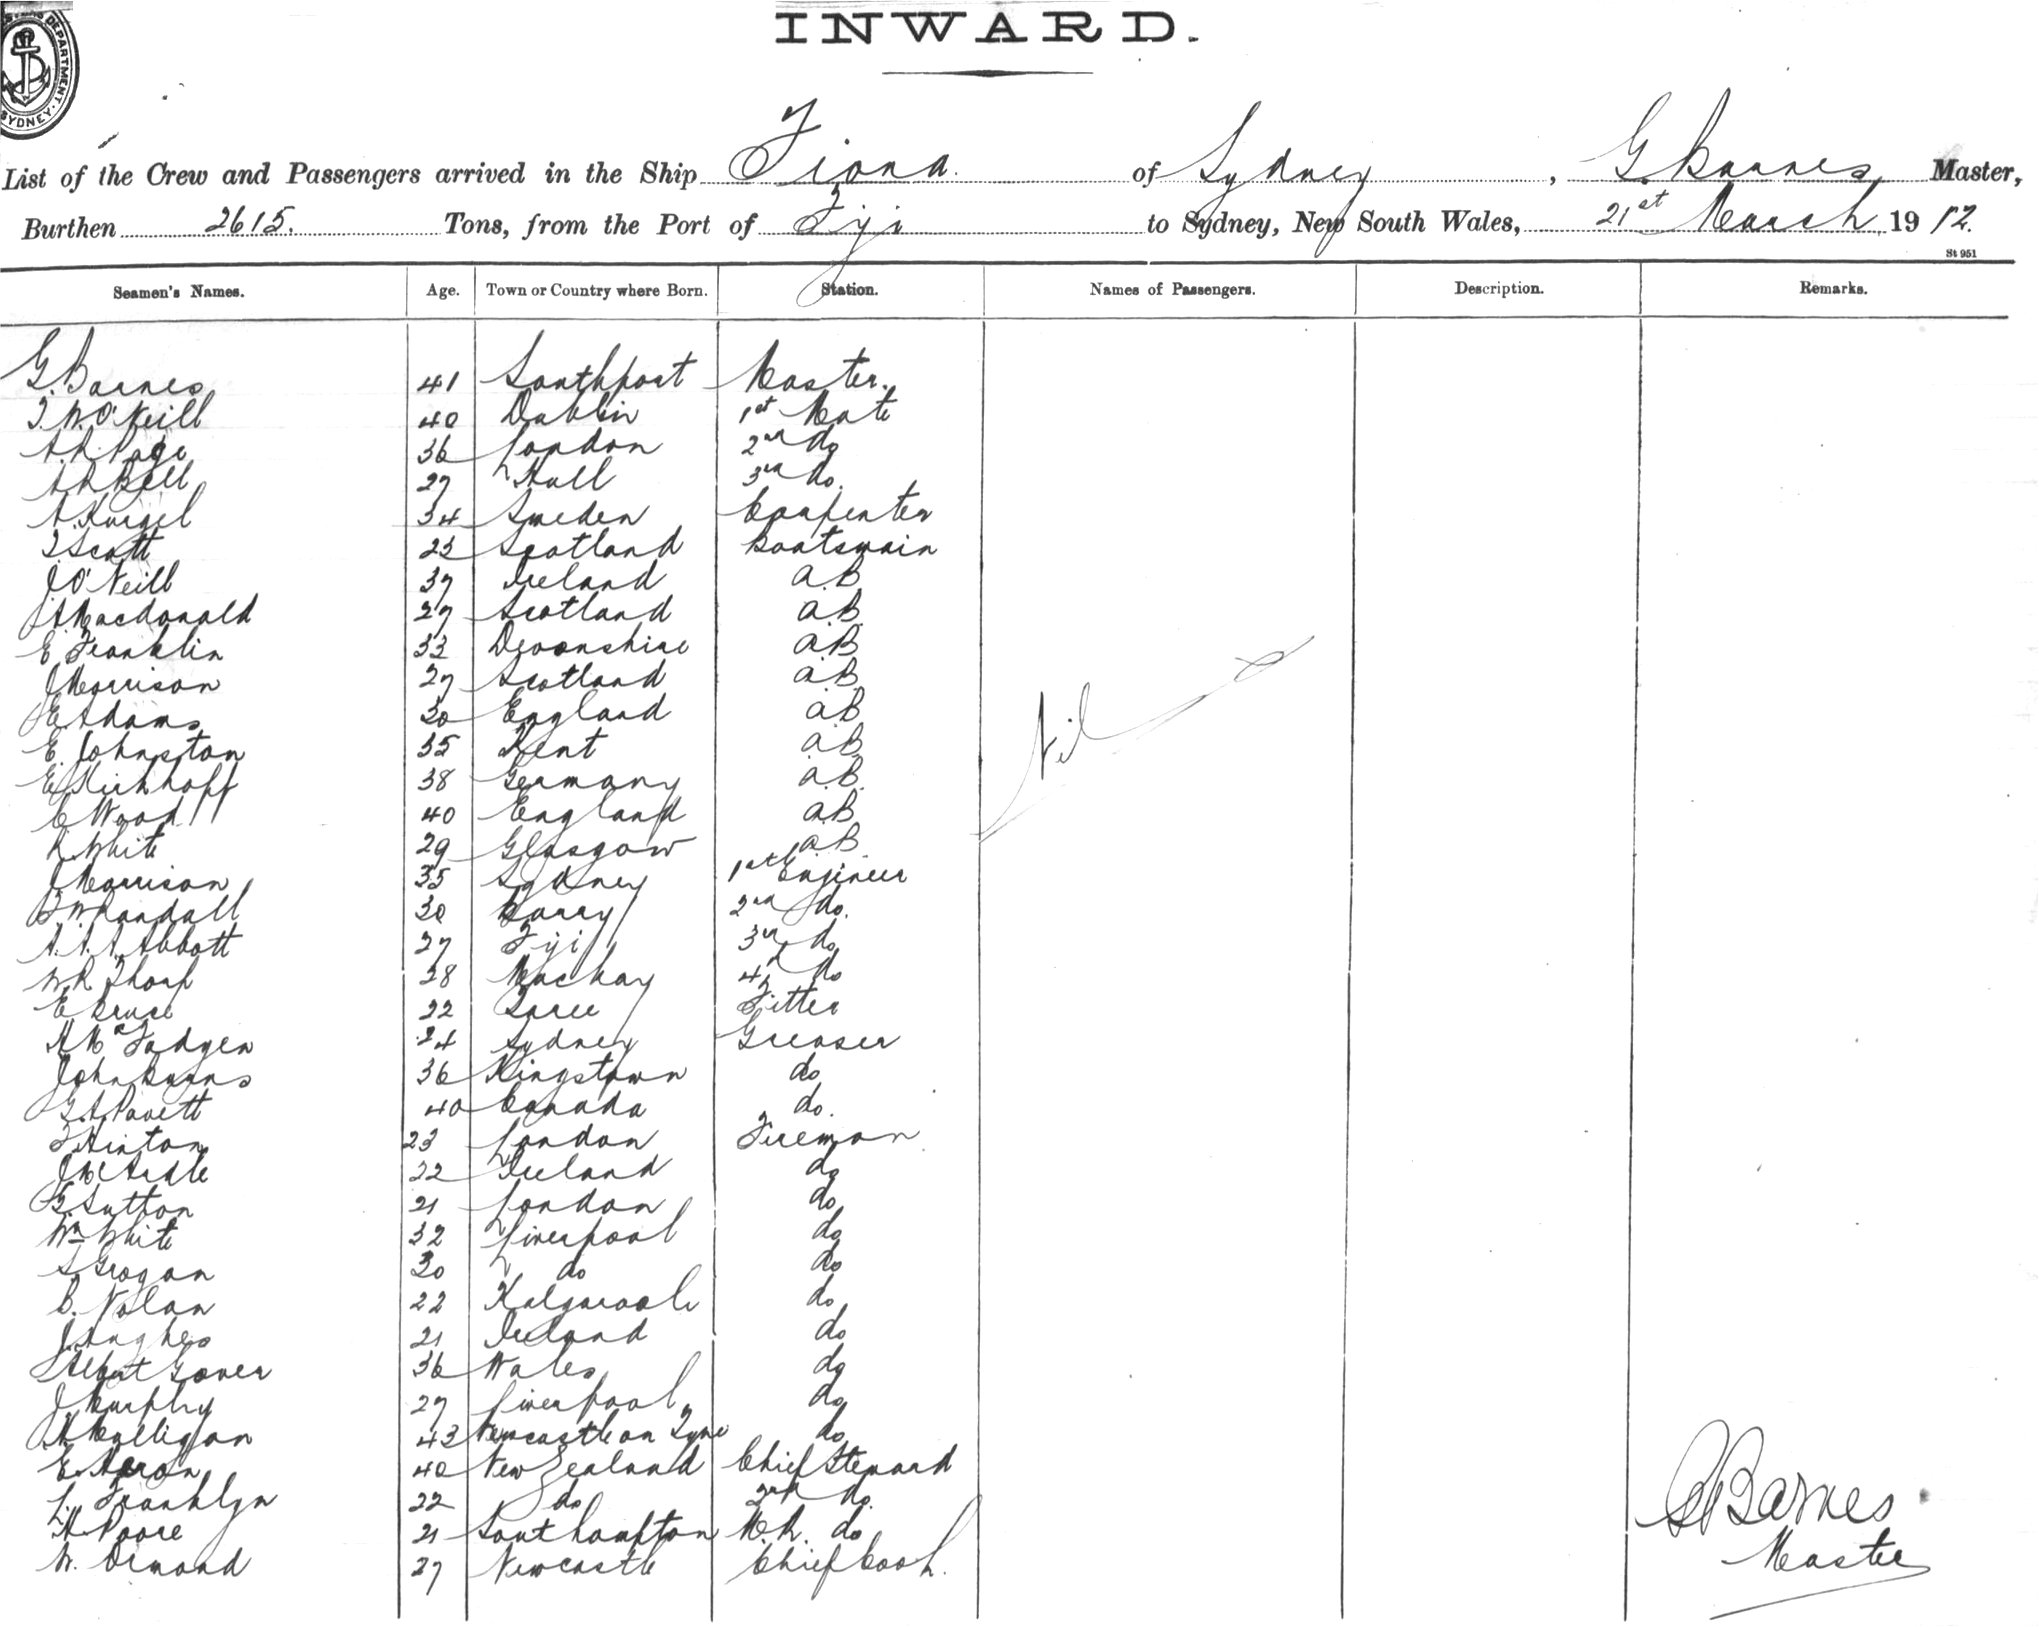 INWARD.
CUSTOMS DEPARTMENT. SYDNEY.
List of the Crew and Passengers arrived in the Ship Fiona. of Sydney, G. Barnes Master,
Burthen 2615. Tons, from the Port of Fiji to Sydney, New South Wales, 21st March 1912.
St 951
Seamen's Names. Age. Town or Country where Born. Station. Names of Passengers. Description. Remarks.
G. Barnes 41 Southport Master.
T. W. O'Neill 40 Dublin 1st Mate
A. R. Page 36 London 2nd do
A R Bell 27 Hull 3rd do.
A. Kurgel 34 Sweden Carpenter
T Scott 23 Scotland Boatswain
J O'Neill 37 Ireland A.B
A Macdonald 27 Scotland A.B.
E. Franklin 33 Devonshire A.B
J Morrison 27 Scotland A.B
E Adams 30 England A.B
E. Johnston 35 Kent A.B
E Kirkhoff 38 Germany A.B.
C Wood 40 England A.B
R. White 29 Glasgow A.B
Nil
J Morrison 35 Sydney 1st Engineer
F. W Randall 30 Barry 2nd do.
A. A. A. Abbott 27 Fiji 3rd do
W R Thorp 28 Mackay 4th do
E Bruce 22 Taree Fitter
H McFadyen 24 Sydney Greaser
John Burns 36 Kingstown do
G A Pavett 40 Canada do.
F Hinton 23 London Fireman
J McArdle 22 Ireland do
G. Sutton 21 London do
Wm White 32 Liverpool do
S Grogan 30 do do
B. Nolan 22 Kalgoorli do
J. Hughes 21 Ireland do
Albert Gover 36 Wales do
J. Murphy 27 Liverpool do
H. Mulligan 43 Newcastle on Tyne do
E. Heron 40 New Zealand Chief Steward
L. Franklyn 22 do 2nd do.
H Poore 21 Southampton M. R. do
W. Ormond 27 Newcastle Chief Cook.
G Barnes
Master